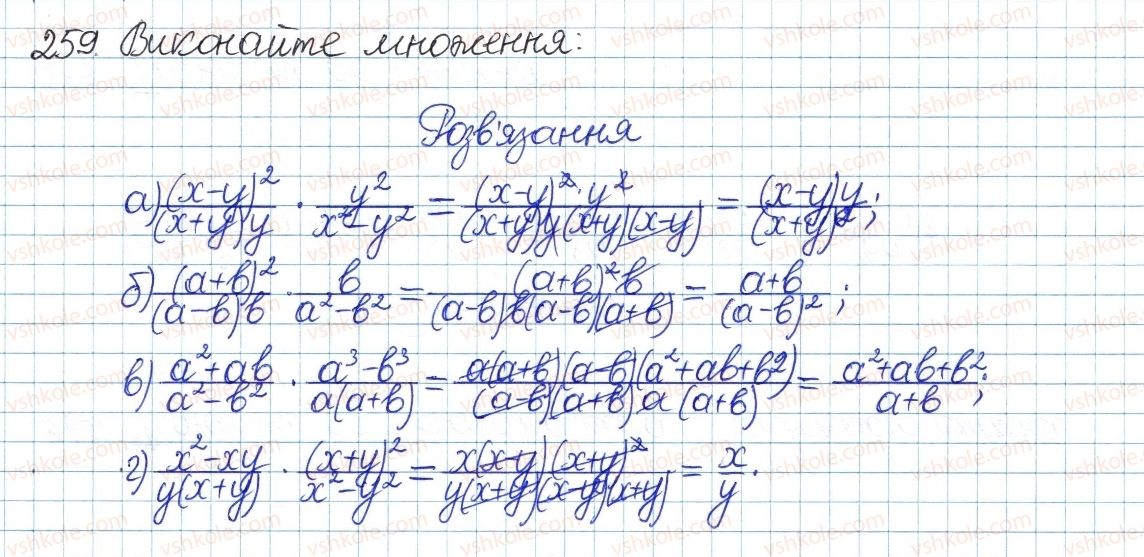 259. Виконайте множення:
Розв'язання
а) (x-y)²/(x+y)y · y²/x²-y² = (x-y)²·y²/(x+y)y(x+y)(x-y) = (x-y)y/(x+y)²;
б) (a+b)²/(a-b)b · b/a²-b² = (a+b)²b/(a-b)b(a-b)(a+b) = a+b/(a-b)²;
в) a²+ab/a²-b² · a³-b³/a(a+b) = a(a+b)(a-b)(a²+ab+b²)/(a-b)(a+b)a(a+b) = a²+ab+b²/a+b;
г) x²-xy/y(x+y) · (x+y)²/x²-y² = x(x-y)(x+y)²/y(x+y)(x-y)(x+y) = x/y.